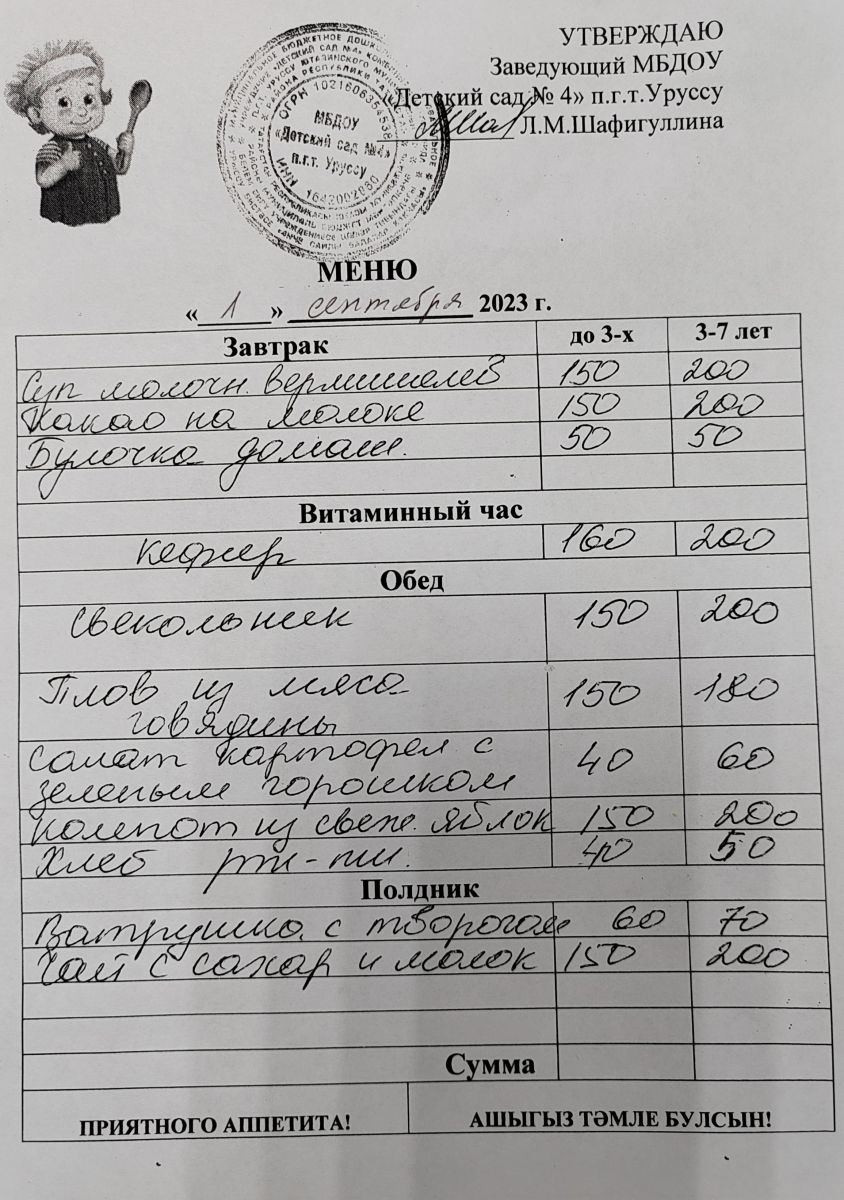 УТВЕРЖДАЮ
Заведующий МБДОУ
«Детский сад № 4» п.г.т.Уруссу
Л.М.Шафигуллина
ОГРН 1021606354538
МБДОУ
«Детский сад №4»
п.г.т. Уруссу
ИНН 1642002880
МЕНЮ
« 1 » сентября 2023 г.
Завтрак до 3-х 3-7 лет
Суп молочн. вермишелев 150 200
Какао на молоке 150 200
Булочка домаш. 50 50
Витаминный час
Кефир 160 200
Обед
Свекольник 150 200
Плов из мяса 150 180
говядины
Салат картофел с 40 60
зеленым горошком
Компот из свеж. яблок 150 200
Хлеб рж-пш. 40 50
Полдник
Ватрушка с творогом 60 70
Чай с сахар и молок 150 200
Сумма
ПРИЯТНОГО АППЕТИТА! АШЫГЫЗ ТӘМЛЕ БУЛСЫН!